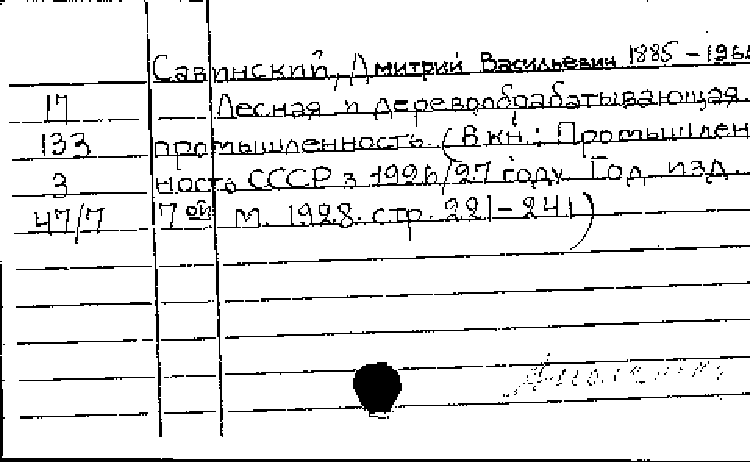 Савинский, Дмитрий Васильевич 1885-196
17 Лесная и деревообрабатывающая
133 промышленность. (В кн.: Промышлен
3 ность СССР в 1926/27 году. Год изд.
47/7 7ой М. 1928. стр. 221-241)